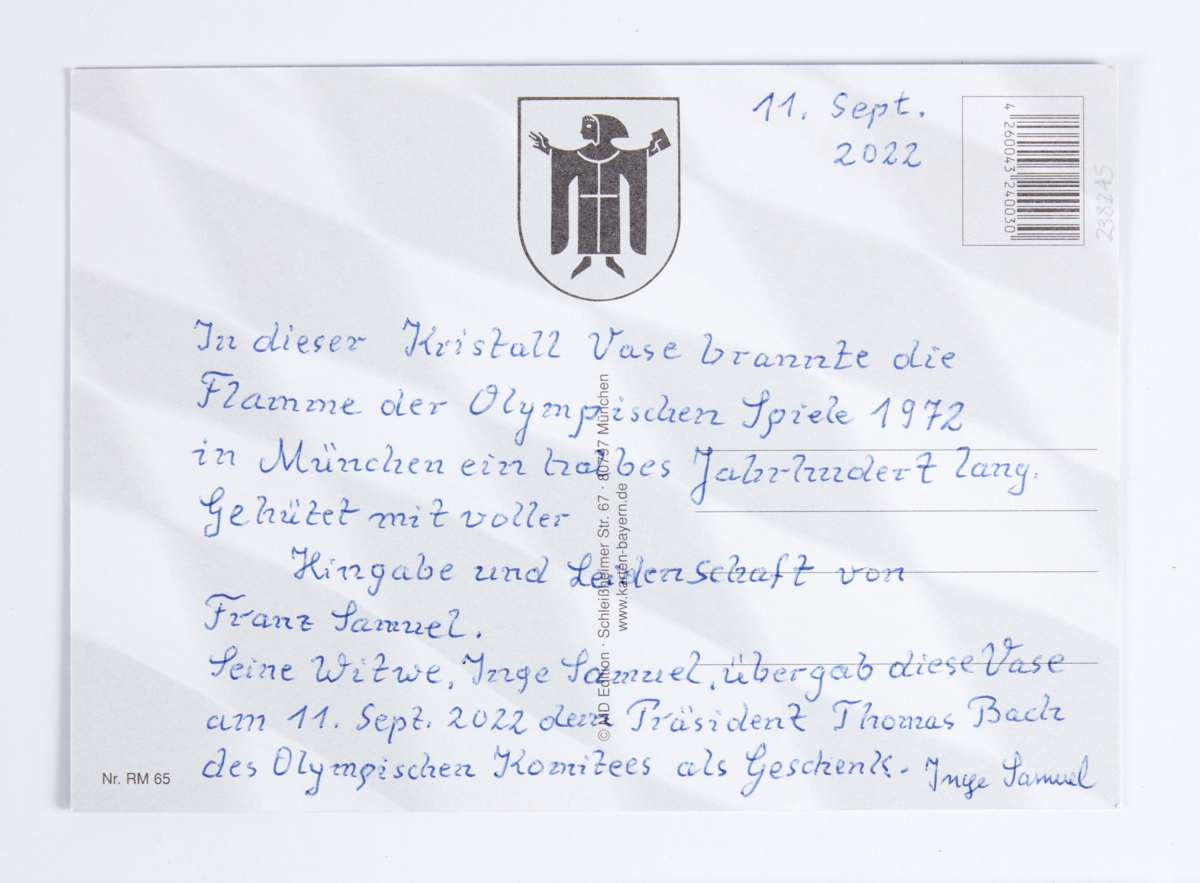 11. Sept.
2022
4 260043 240030
238245
In dieser Kristall Vase brannte die
Flamme der Olympischen Spiele 1972
in München ein halbes Jahrhundert lang.
Gehütet mit voller
Hingabe und Leidenschaft von
Franz Samuel.
Seine Witwe, Inge Samuel, übergab diese Vase
am 11. Sept. 2022 dem Präsident Thomas Bach
des Olympischen Komitees als Geschenk.
Inge Samuel
© MD Edition · Schleißheimer Str. 67 · 80797 München
www.karten-bayern.de
Nr. RM 65